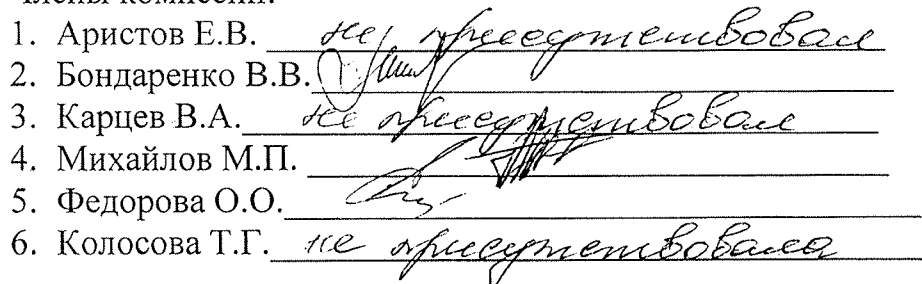 Члены комиссии:
1. Аристов Е.В. не присутствовал
2. Бондаренко В.В.
3. Карцев В.А. не присутствовал
4. Михайлов М.П.
5. Федорова О.О.
6. Колосова Т.Г. не присутствовала